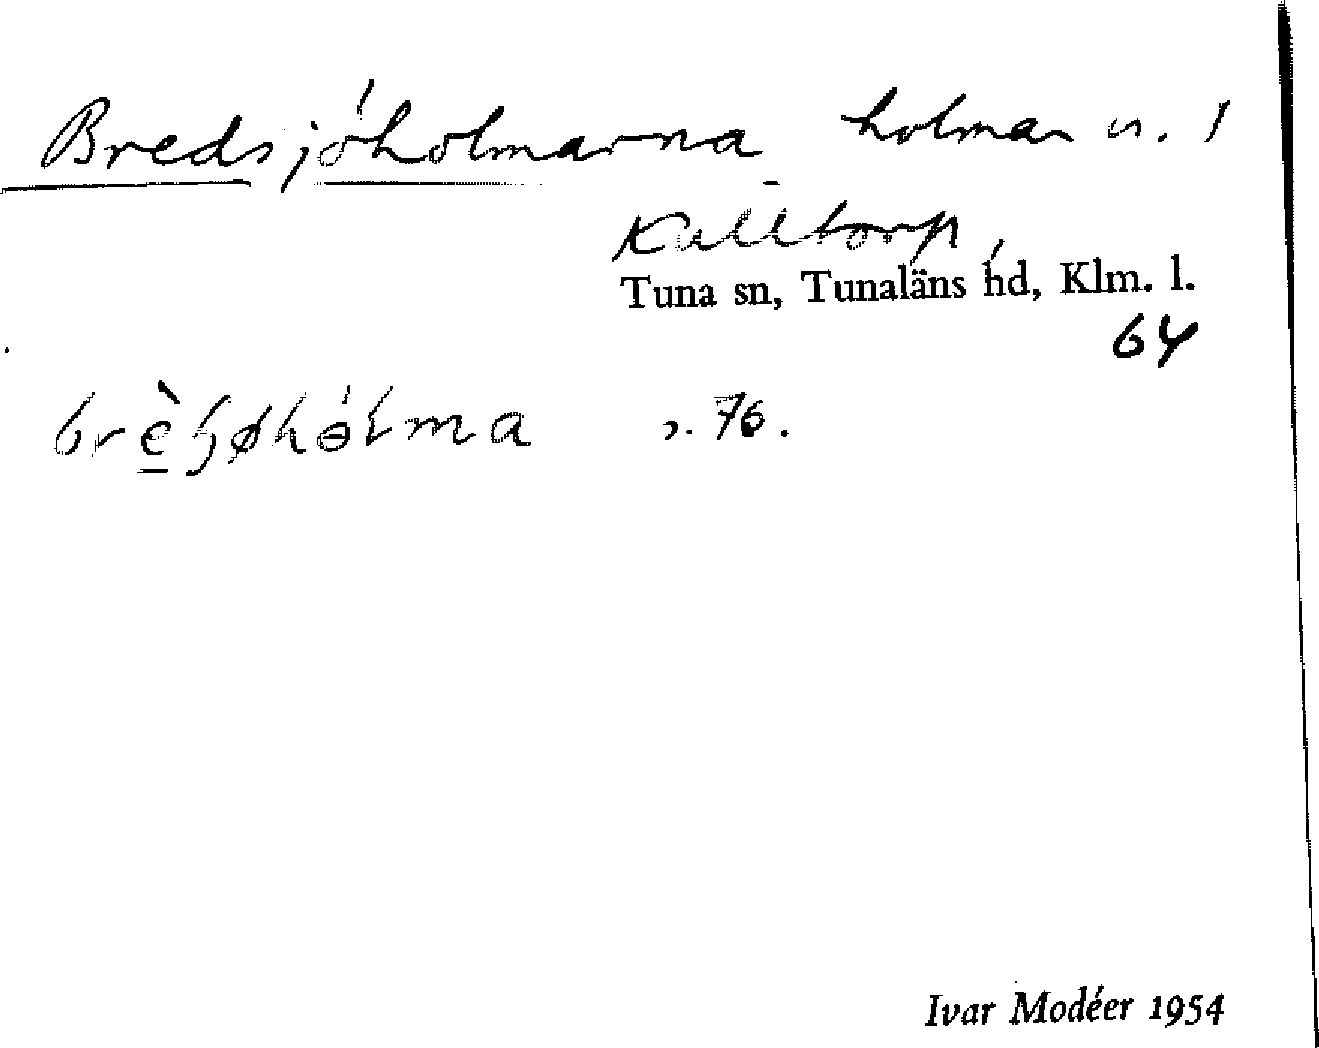 Bredsjöholmarna holmar n. 1
Kulltorp,
Tuna sn, Tunaläns hd, Klm. l.
64
s. 76.
Ivar Modéer 1954